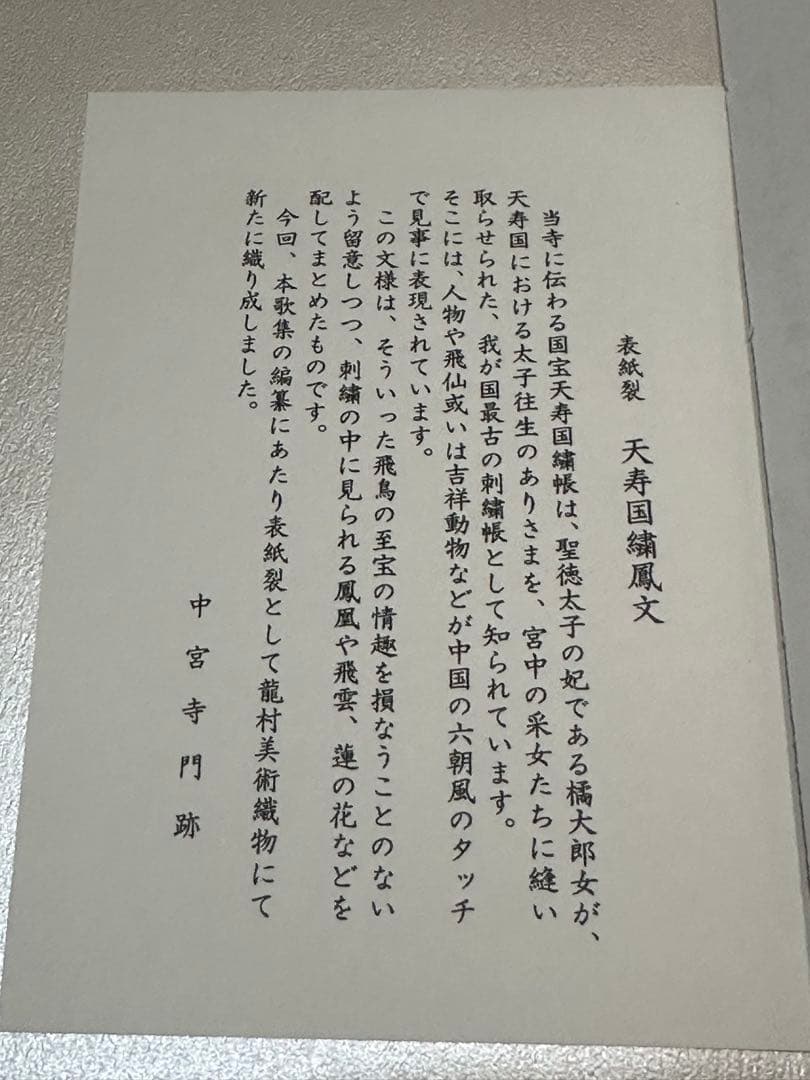 表紙裂　天寿国繡鳳文
当寺に伝わる国宝天寿国繡帳は、聖徳太子の妃である橘大郎女が、
天寿国における太子往生のありさまを、宮中の采女たちに縫い
取らせられた、我が国最古の刺繡帳として知られています。
そこには、人物や飛仙或いは吉祥動物などが中国の六朝風のタッチ
で見事に表現されています。
この文様は、そういった飛鳥の至宝の情趣を損なうことのない
よう留意しつつ、刺繡の中に見られる鳳凰や飛雲、蓮の花などを
配してまとめたものです。
今回、本歌集の編纂にあたり表紙裂として龍村美術織物にて
新たに織り成しました。
中宮寺門跡